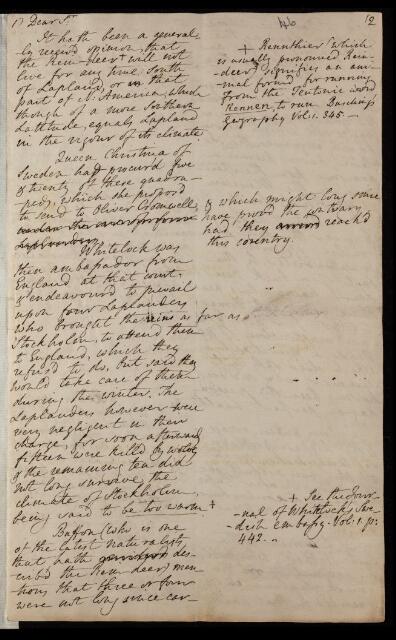 1) Dear Sr
46
12
It hath been a general-
-ly receiv'd opinion, that
the Rein-deer+ will not
live for any time, South
of Lapland, or in that
part of N: America, which
though of a more Southern
Latitude, equals Lapland
in the rigour of its climate.
Queen Christina of
Sweden had procur'd five
& twenty of these quadru-
-peds, which she propos'd
to send to Oliver Cromwell,
Whitelock was
then ambassador from
England at that court,
& endeavour'd to prevail
upon four Laplanders
who brought the reins as far as
Stockholm, to attend them
to England, which they
refus'd to do, but said they
would take care of them
during the winter. The
Laplanders however were
very negligent in their
charge, for soon afterward
fifteen were kill'd by wolves
& the remaining ten did
not long survive, the
climate of Stockholm,
being said to be too warm +
Buffon (who is one
of the latest naturalists
that hath des-
-crib'd the Rein-deer) men-
-tions that three or four
were not long since car-
+ Rennthier (which
is usually pronounced Rein-
-deer) signifies an ani-
-mal form'd for running
from the Teutonic word
Rennen, to run. Busching's
Geography Vol: 1. 345.—
& which might long since
have prov'd the contrary
had they arriv'd reach'd
this country.
+ See the Jour-
-nal of Whitelock's Swe-
-dish embassy. Vol: 1. p:
442. —